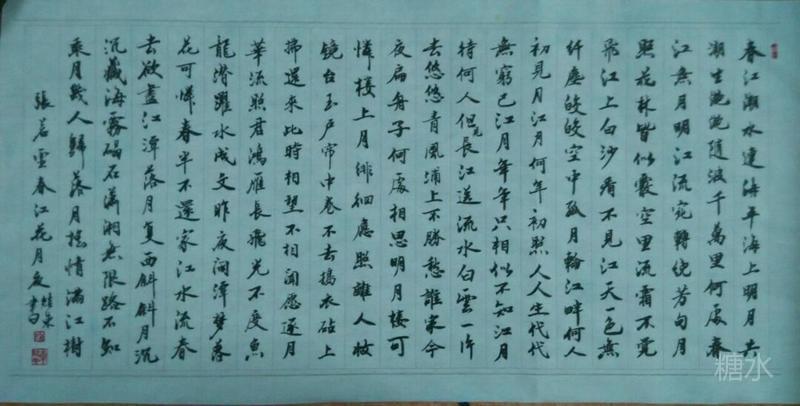 春江潮水連海平海上明月共
潮生滟滟随波千萬里何處春
江無月明江流宛轉绕芳甸月
照花林皆似霰空里流霜不覺
飛江上白沙看不見江天一色無
纤塵皎皎空中孤月輪江畔何人
初見月江月何年初照人人生代代
無窮已江月年年只相似不知江月
待何人但見長江送流水白雲一片
去悠悠青風浦上不勝愁誰家今
夜扁舟子何處相思明月樓可
憐樓上月徘徊應照離人妝
镜台玉户帘中卷不去搗衣砧上
拂還來此時相望不相聞愿逐月
華流照君鴻雁長飛光不度魚
龍潛躍水成文昨夜闲潭梦落
花可憐春半不還家江水流春
去欲盡江潭落月复西斜斜月沉
沉藏海霧碣石瀟湘无限路不知
乘月幾人歸落月摇情滿江樹
張若雲春江花月夜
糖水